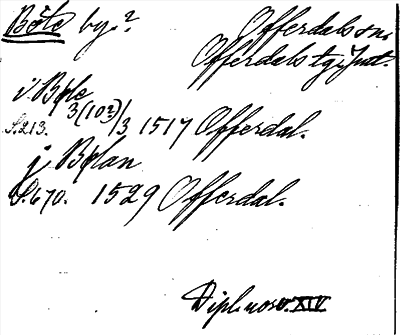 Böle by.? Offerdals sn.
Offerdals tg. Jmt.
i Bøle
S. 213. 3(10?)/3 1517 Offerdal.
j Bølan
S. 670. 1529 Offerdal.
Dipl. nor. XIV